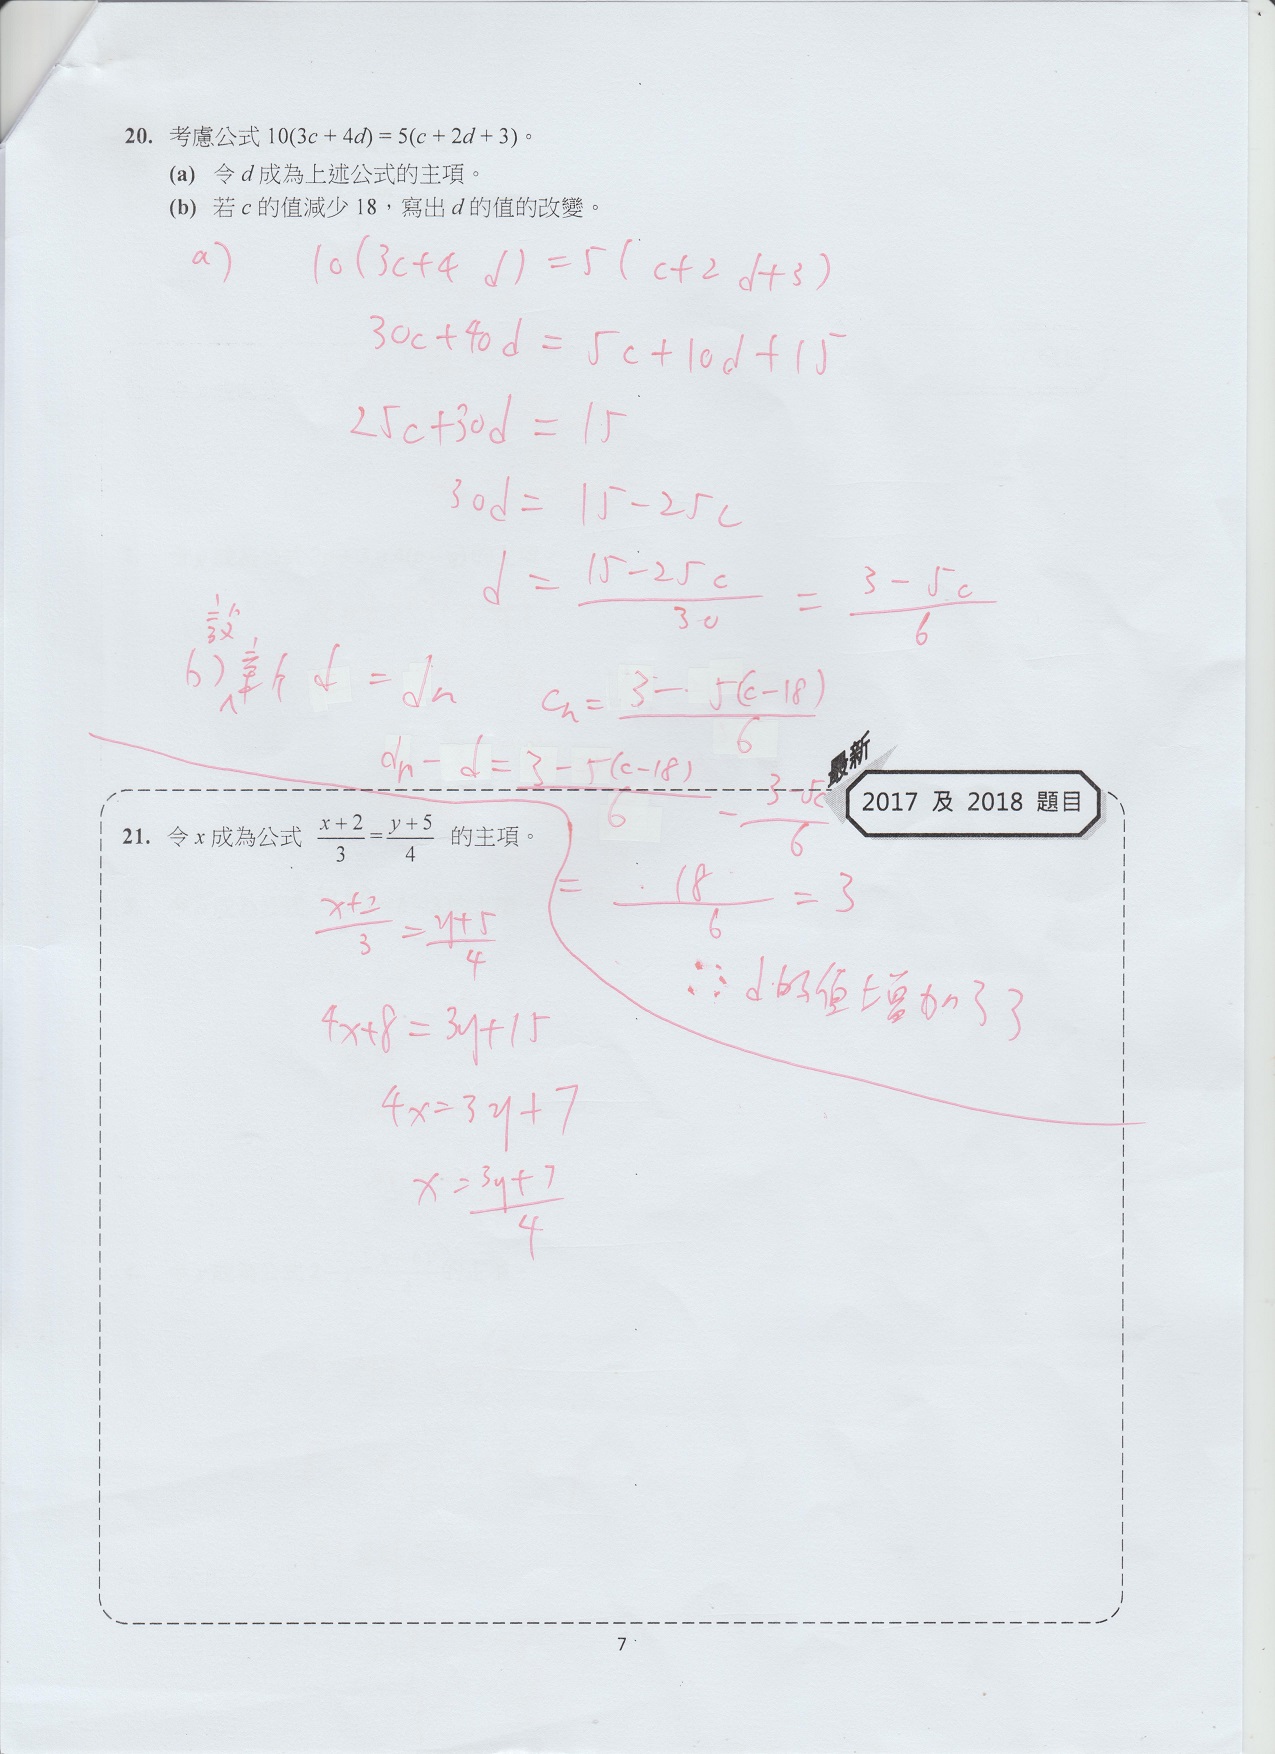 20. 考慮公式 10(3c + 4d) = 5(c + 2d + 3)。
(a) 令 d 成為上述公式的主項。
(b) 若 c 的值減少 18，寫出 d 的值的改變。
a) 10(3c+4d) = 5(c+2d+3)
30c+40d = 5c+10d+15
25c+30d = 15
30d = 15-25c
d = (15-25c)/30 = (3-5c)/6
設
b) 新 d = dn cn = (3-5(c-18))/6
dn - d = (3-5(c-18))/6 - (3-5c)/6
= 18/6 = 3
∴ d 的值增加了 3
最新
2017 及 2018 題目
21. 令 x 成為公式 (x+2)/3 = (y+5)/4 的主項。
(x+2)/3 = (y+5)/4
4x+8 = 3y+15
4x = 3y+7
x = (3y+7)/4
7